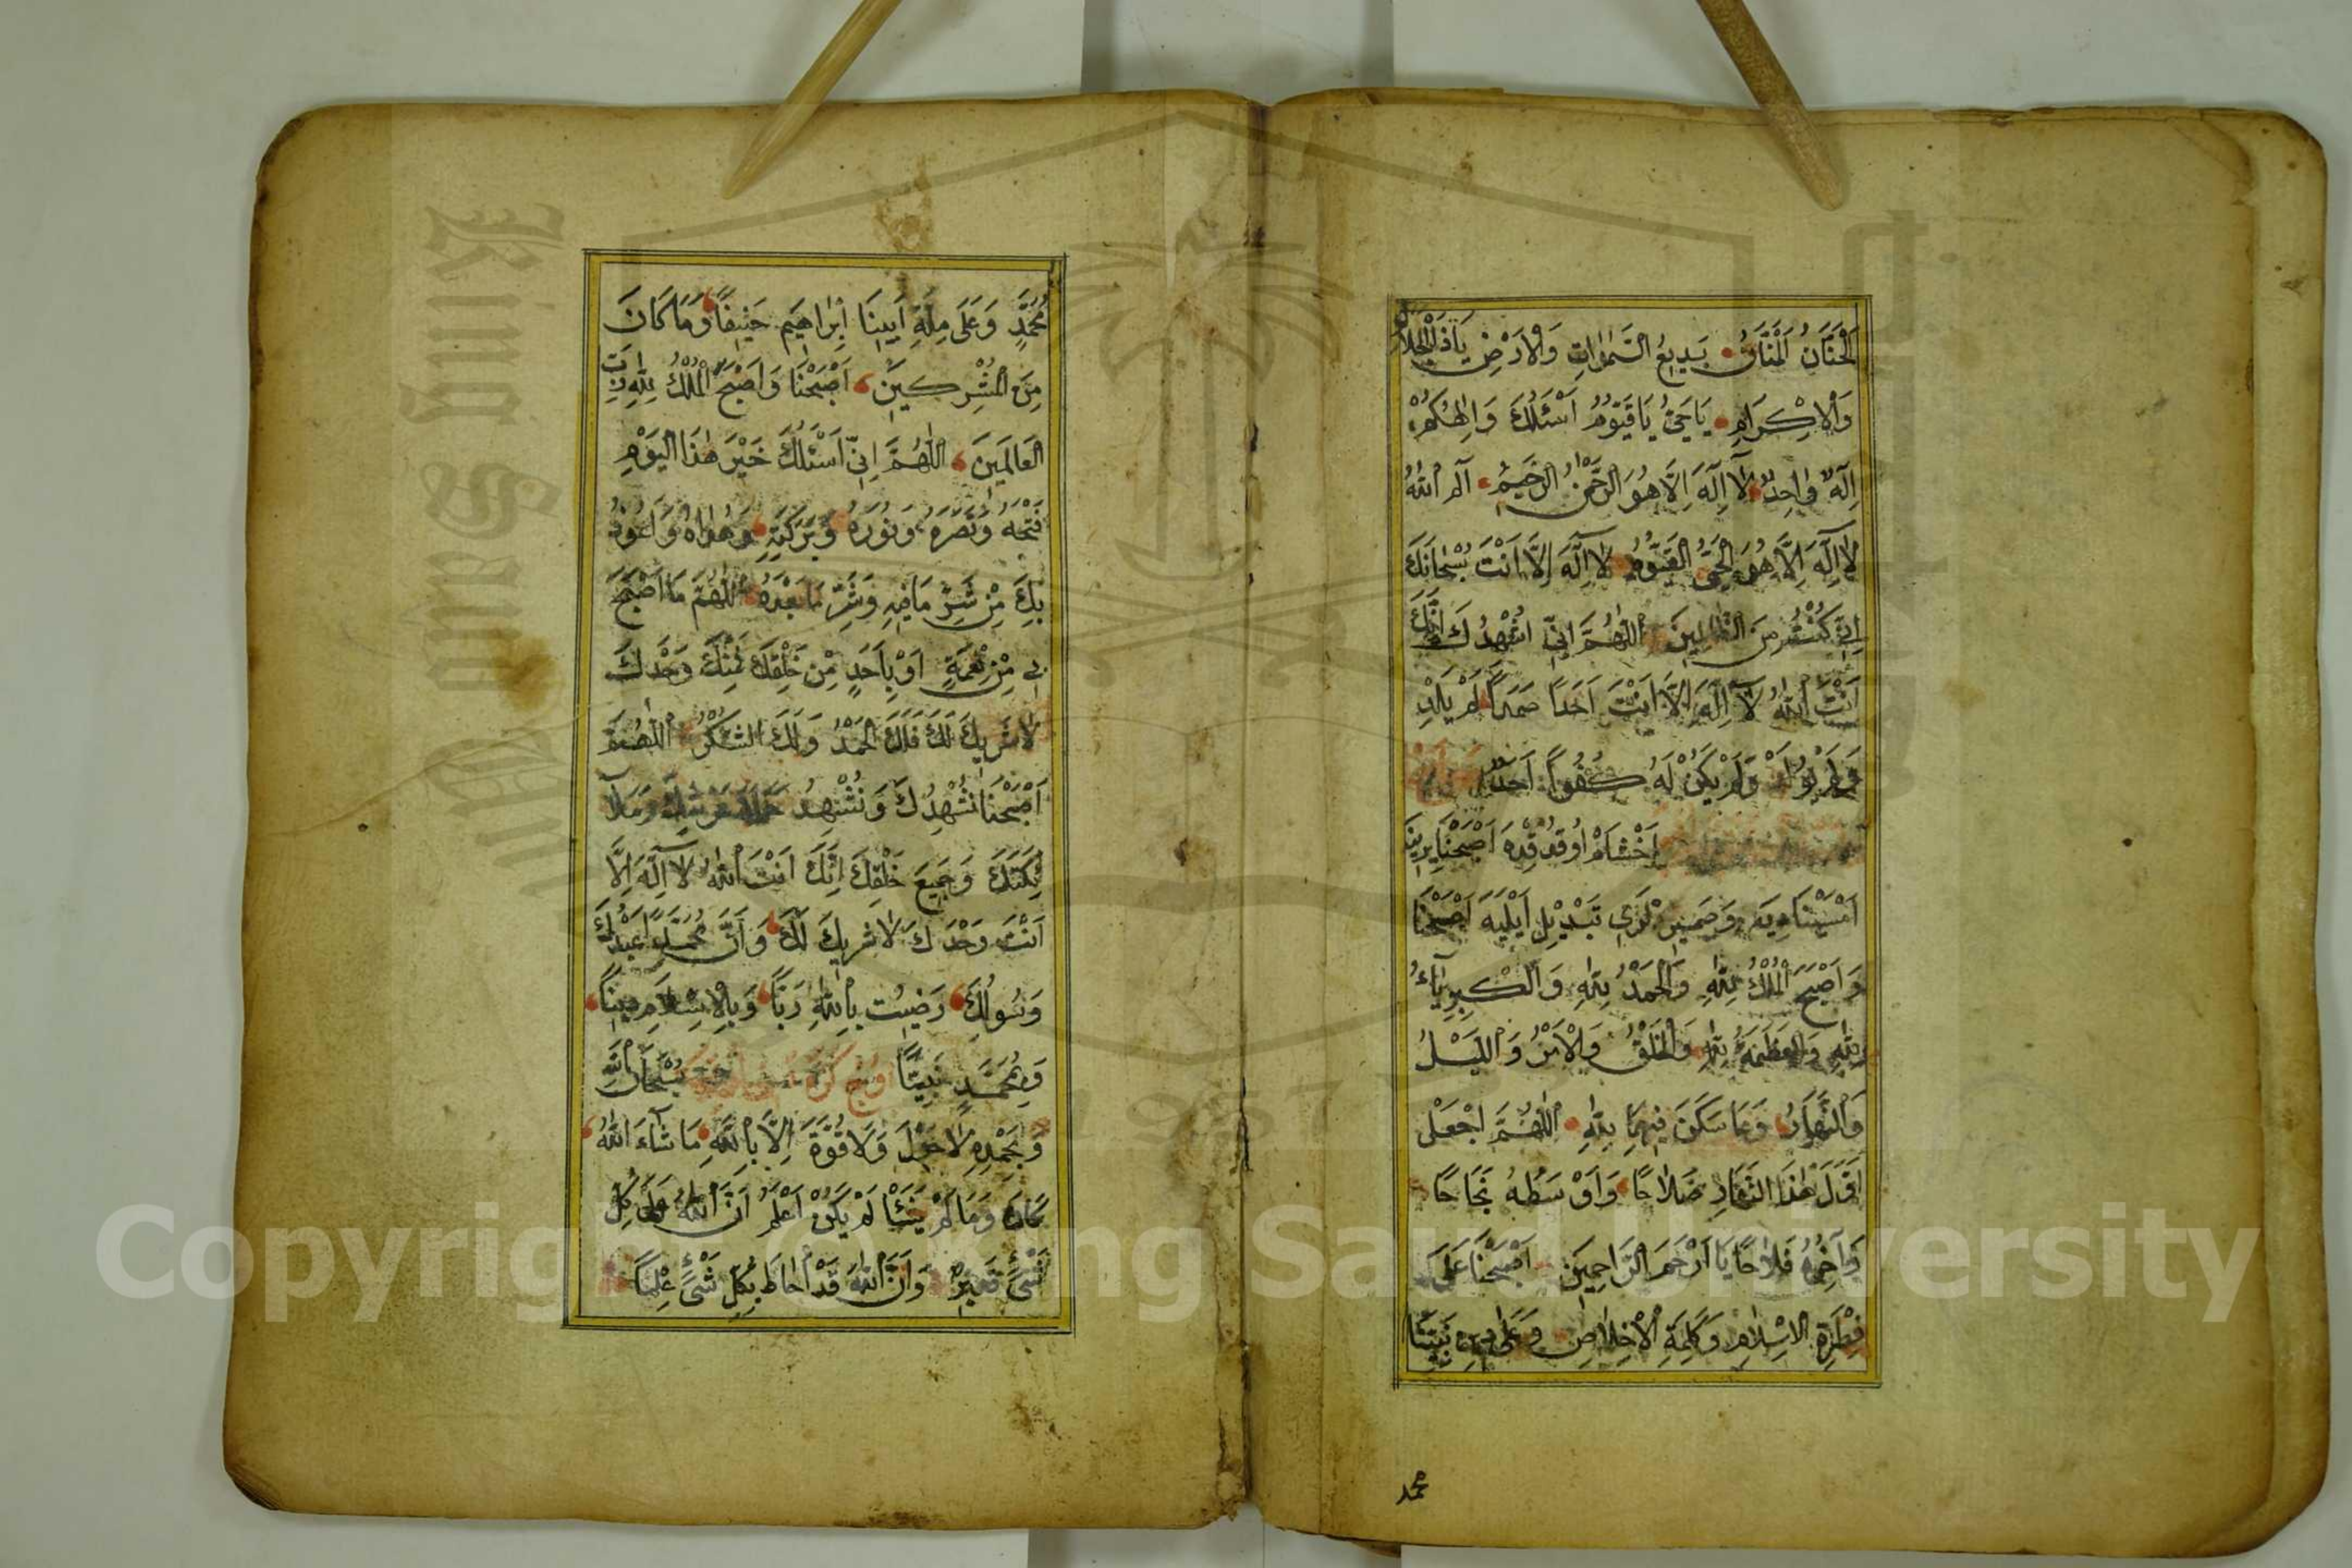 اَلْحَنَّانُ الْمَنَّانُ بَدِيعُ السَّمٰوَاتِ وَالْاَرْضِ يَاذَا الْجَلَالِ
وَالْاِكْرَامِ يَاحَيُّ يَاقَيُّومُ اَسْئَلُكَ وَاِلٰهُكُمْ
اِلٰهٌ وَاحِدٌ لَآ اِلٰهَ اِلَّا هُوَ الرَّحْمٰنُ الرَّحِيمُ الٓمٓ اَللهُ
لَا اِلٰهَ اِلَّا هُوَ الْحَيُّ الْقَيُّومُ لَا اِلٰهَ اِلَّا اَنْتَ سُبْحَانَكَ
اِنِّي كُنْتُ مِنَ الظَّالِمِينَ اَللّٰهُمَّ اِنِّي اُشْهِدُكَ اَنَّكَ
اَنْتَ اللهُ لَآ اِلٰهَ اِلَّا اَنْتَ اَحَدًا صَمَدًا لَمْ يَلِدْ
وَلَمْ يُولَدْ وَلَمْ يَكُنْ لَهُ كُفُوًا اَحَدٌ
اَخْشَامْ اُوقُدُقْدَه اَصْبَحْنَا يِرِينَه
اَمْسَيْنَا دِيَه وَضَمِيرْلَرِي تَبْدِيْل اَيْلِيَه اَصْبَحْنَا
وَاَصْبَحَ الْمُلْكُ لِلّٰهِ وَالْحَمْدُ لِلّٰهِ وَالْكِبْرِيَآءُ
لِلّٰهِ وَالْعَظَمَةُ لِلّٰهِ وَالْخَلْقُ وَالْاَمْرُ وَاللَّيْلُ
وَالنَّهَارُ وَمَا سَكَنَ فِيهِمَا لِلّٰهِ اَللّٰهُمَّ اجْعَلْ
اَوَّلَ هٰذَا النَّهَارِ صَلَاحًا وَاَوْسَطَهُ نَجَاحًا
وَاٰخِرَهُ فَلَاحًا يَا اَرْحَمَ الرَّاحِمِينَ اَصْبَحْنَا عَلٰى
فِطْرَةِ الْاِسْلَامِ وَكَلِمَةِ الْاِخْلَاصِ وَعَلٰى دِينِ نَبِيِّنَا
محمد
مُحَمَّدٍ وَعَلٰى مِلَّةِ اَبِينَا اِبْرَاهِيمَ حَنِيفًا وَمَا كَانَ
مِنَ الْمُشْرِكِينَ اَصْبَحْنَا وَاَصْبَحَ الْمُلْكُ لِلّٰهِ رَبِّ
الْعَالَمِينَ اَللّٰهُمَّ اِنِّي اَسْئَلُكَ خَيْرَ هٰذَا الْيَوْمِ
فَتْحَهُ وَنَصْرَهُ وَنُورَهُ وَبَرَكَتِهِ وَهُدَاهُ وَاَعُوذُ
بِكَ مِنْ شَرِّ مَا فِيهِ وَشَرِّ مَا بَعْدَهُ اَللّٰهُمَّ مَا اَصْبَحَ
بِي مِنْ نِعْمَةٍ اَوْ بِاَحَدٍ مِنْ خَلْقِكَ فَمِنْكَ وَحْدَكَ
لَا شَرِيكَ لَكَ فَلَكَ الْحَمْدُ وَلَكَ الشُّكْرُ اَللّٰهُمَّ
اَصْبَحْنَا نُشْهِدُكَ وَنُشْهِدُ حَمَلَةَ عَرْشِكَ وَمَلَا
ئِكَتَكَ وَجَمِيعَ خَلْقِكَ اِنَّكَ اَنْتَ اللهُ لَآ اِلٰهَ اِلَّا
اَنْتَ وَحْدَكَ لَا شَرِيكَ لَكَ وَاَنَّ مُحَمَّدًا عَبْدُكَ
وَرَسُولُكَ رَضِيتُ بِاللهِ رَبًّا وَبِالْاِسْلَامِ دِينًا
وَبِمُحَمَّدٍ نَبِيًّا اوچ كره سُبْحَانَ اللهِ
وَبِحَمْدِهِ لَا حَوْلَ وَلَا قُوَّةَ اِلَّا بِاللهِ مَا شَآءَ اللهُ
كَانَ وَمَا لَمْ يَشَأْ لَمْ يَكُنْ اَعْلَمُ اَنَّ اللهَ عَلٰى كُلِّ
شَيْءٍ قَدِيرٌ وَاَنَّ اللهَ قَدْ اَحَاطَ بِكُلِّ شَيْءٍ عِلْمًا
King Saud University
Copyright © King Saud University
1957